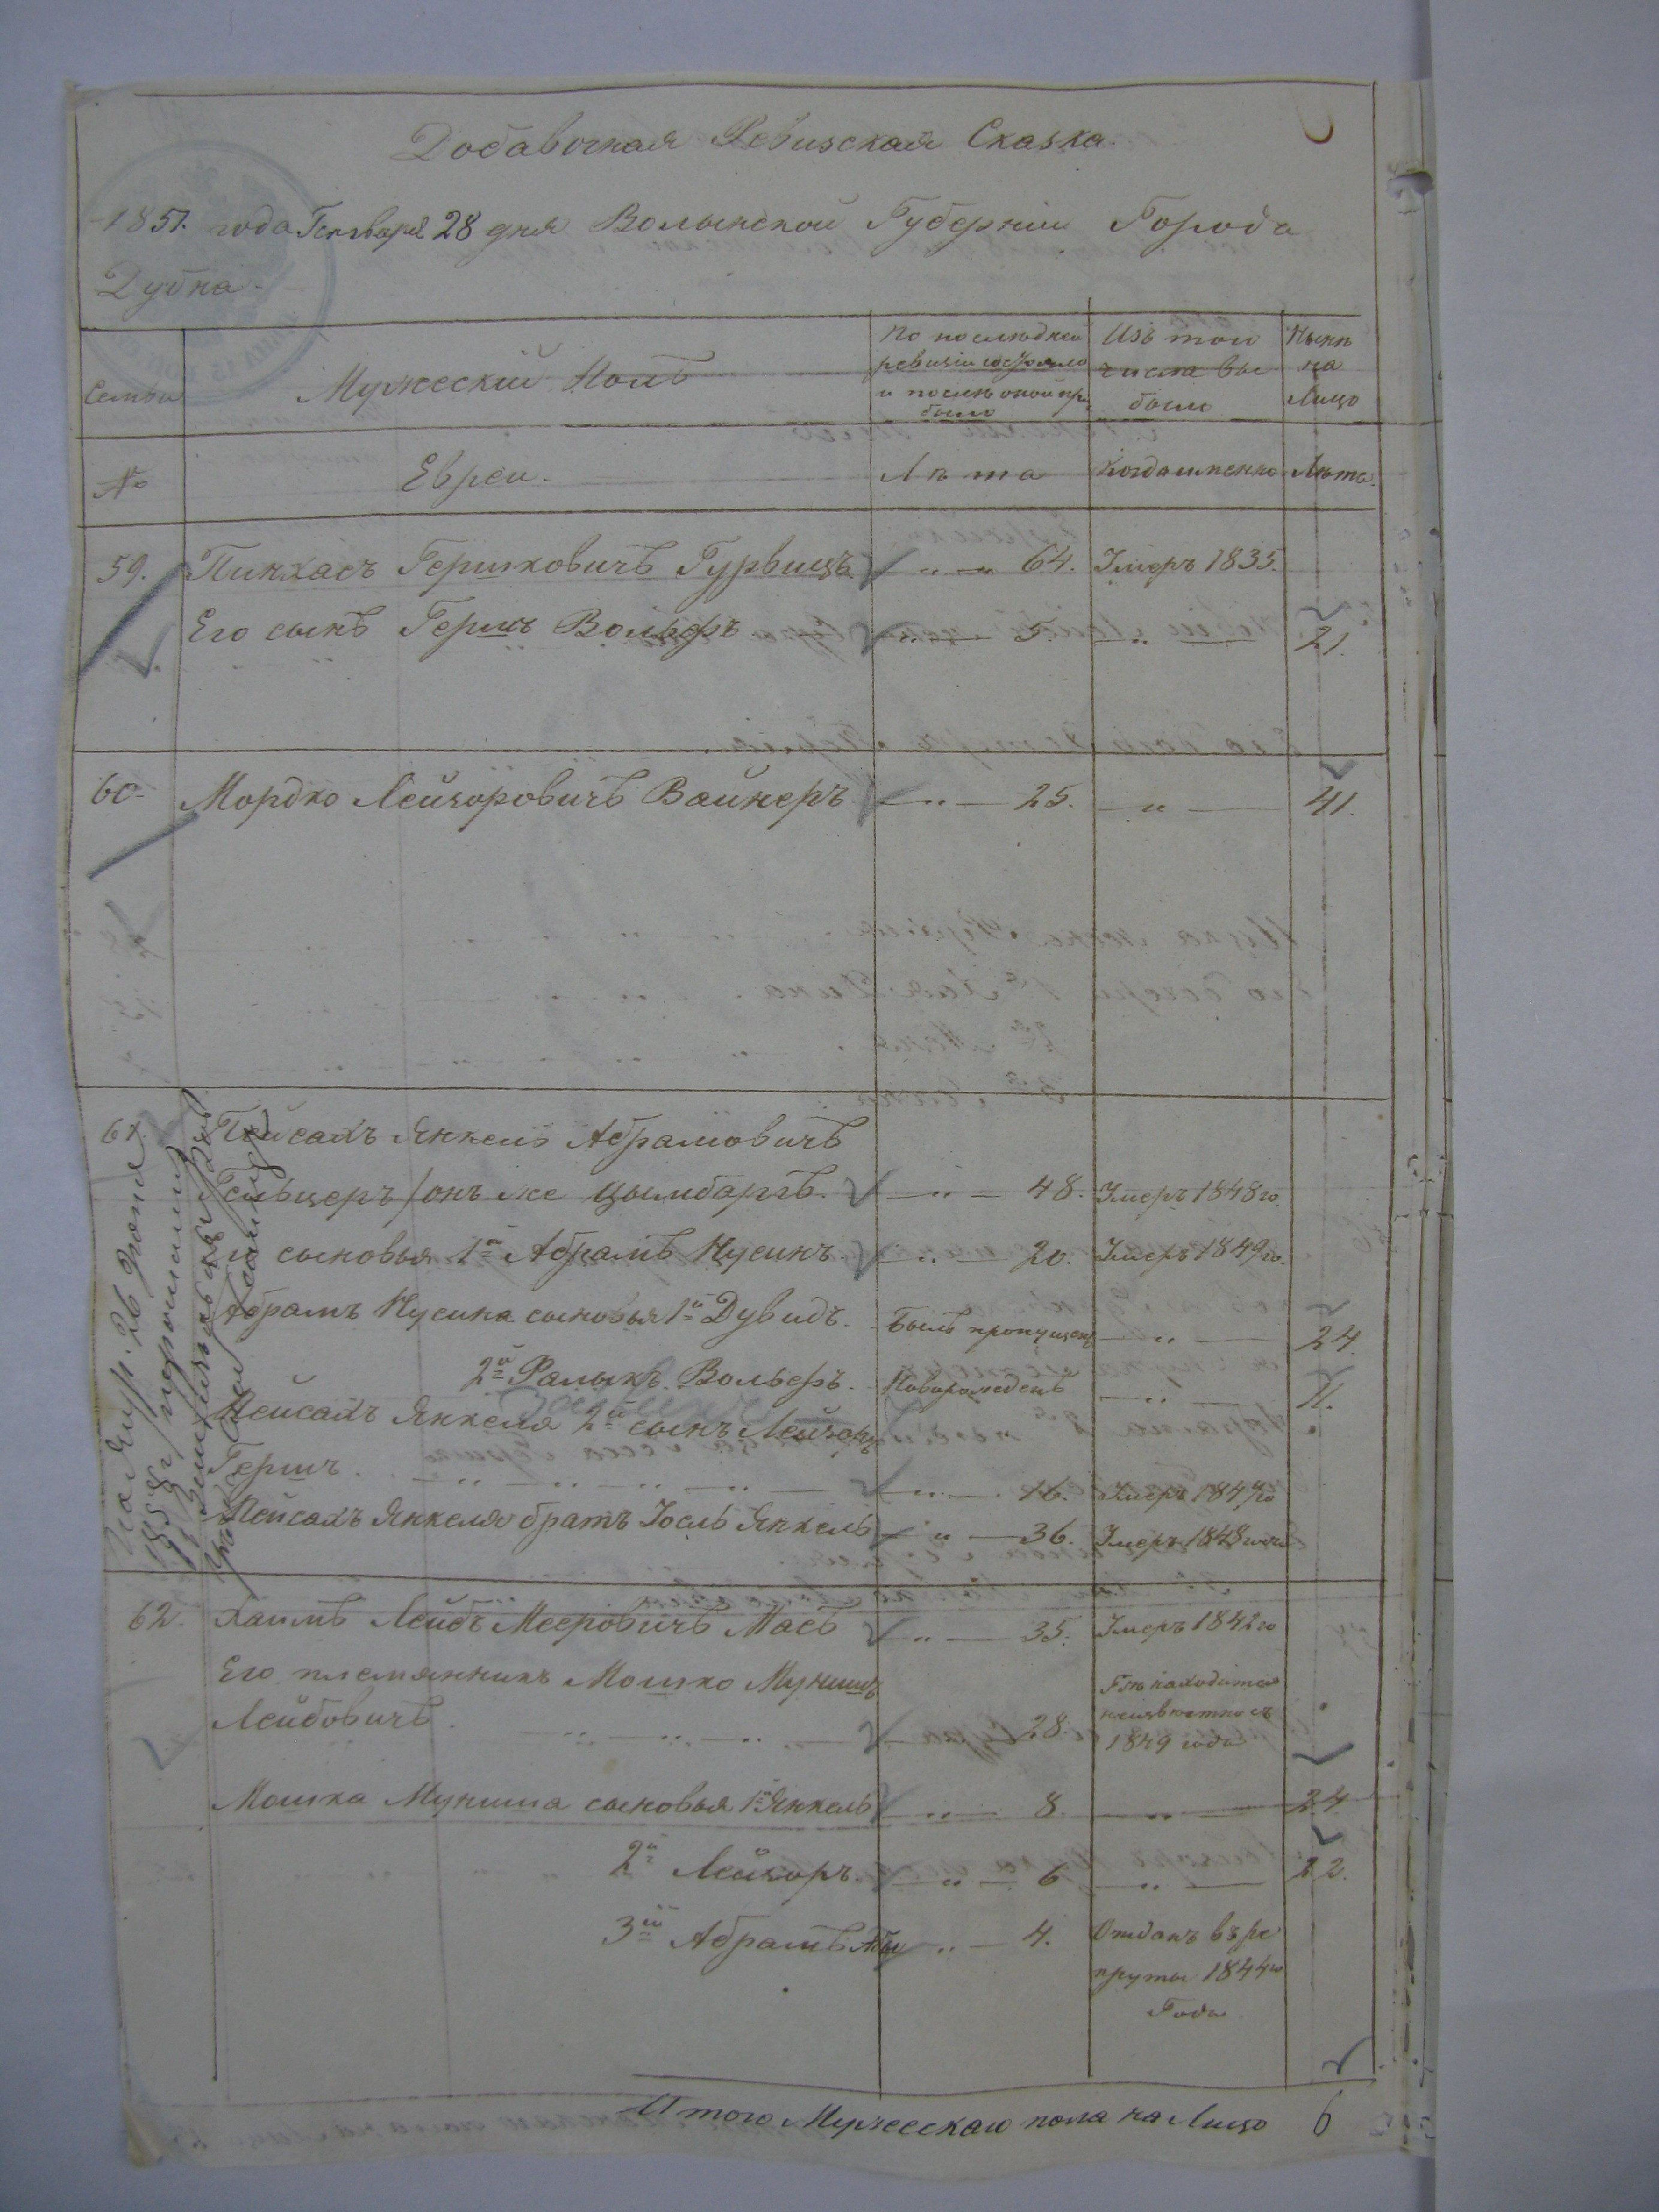 Добавочная Ревизская Сказка
1851. года Генваря 28 дня Волынской Губернии Города
Дубна.
Семьи
Мужеский Полъ
По последней ревизіи состояло и после оной прибыло
Изъ того числа выбыло
Ныне на Лицо
№
Евреи.
Лета
Когда именно
Лета.
59. Пинхасъ Гершковичъ Гурвицъ „ 64. Умеръ 1835.
Его сынъ Гершъ Вольфъ „ 5. „ 21.
60 Мордко Лейзоровичъ Вайнеръ „ 25. „ 41.
61. Пейсахъ Янкель Абрамовичъ
Гельцеръ /онъ же Цымбаргъ. „ 48. Умеръ 1848го
сыновья 1й Абрамъ Нусинъ „ 20. Умеръ 1849го.
Абрамъ Нусина сыновья 1й Дувидъ. Былъ пропущенъ „ 24.
2й Фалыкъ Вольфъ. Новорожденъ „ 11.
Пейсахъ Янкеля 2й сынъ Лейзоръ
Гершъ. „ 16. Умеръ 1847го
Пейсахъ Янкеля братъ Іосль Янкель „ 36. Умеръ 1848
62. Хаимъ Лейбъ Мееровичъ Маеъ „ 35. Умеръ 1842го
Его племянникъ Мошко Мунишъ
Лейбовичъ. „ 28. Где находится неизвестно съ 1849 года
Мошка Муниша сыновья 1й Янкель „ 8 „ 24.
2й Лейзоръ. „ 6 „ 22.
3й Абрамъ Абы „ 4. Отданъ въ рекруты 1844го Года
Итого Мужескаго пола на Лицо 6